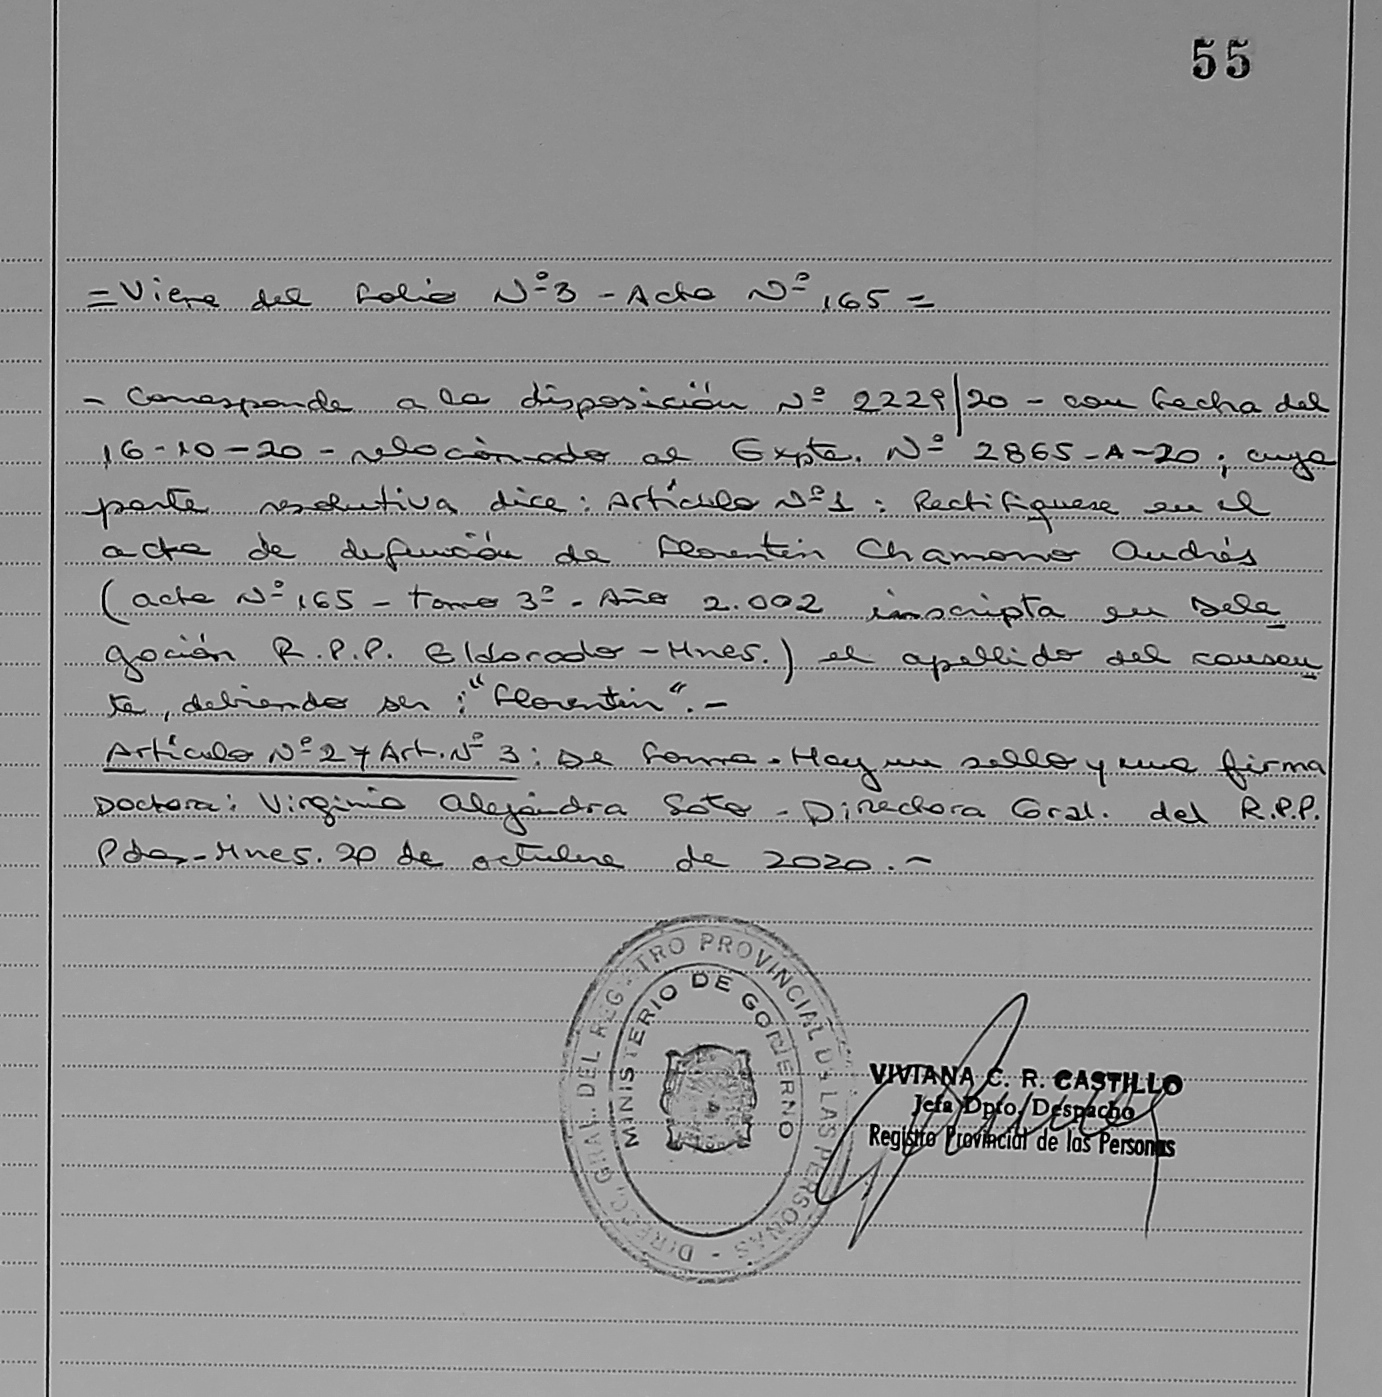 55
= Viene del folio Nº 3 - Acta Nº 165 =
- Corresponde a la disposición Nº 2229/20 - con fecha del
16-10-20 - relacionado al Expte. Nº 2865-A-20; cuya
parte resolutiva dice: Artículo Nº 1: Rectifíquese en el
acta de defunción de Florentin Chamorro Andrés
(acta Nº 165 - tomo 3º - Año 2.002 inscripta en Dele
gación R.P.P. Eldorado - Mnes.) el apellido del causan
te, debiendo ser: "Florentin". -
Artículo Nº 2 y Art. Nº 3: De forma. Hay un sello y una firma
Doctora: Virginia Alejandra Soto - Directora Gral. del R.P.P.
Pdas - Mnes. 20 de octubre de 2020. -
DIREC. GRAL. DEL REGISTRO PROVINCIAL DE LAS PERSONAS -
MINISTERIO DE GOBIERNO
VIVIANA C. R. CASTILLO
Jefa Dpto. Despacho
Registro Provincial de las Personas